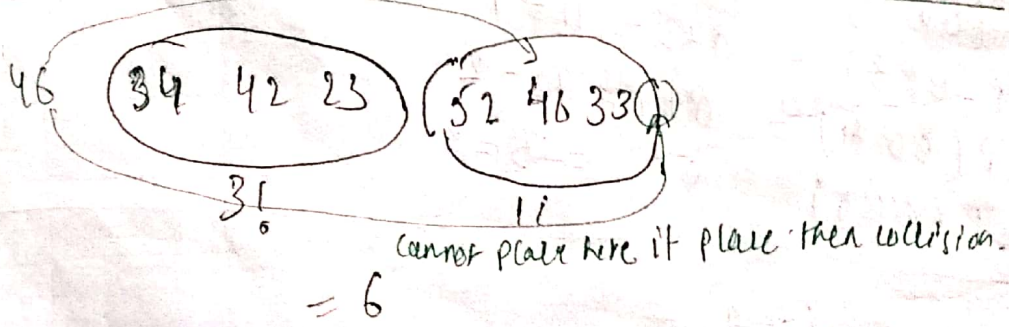 46 (34 42 23) (52 46 33 ( ))
3! 1!
cannot place here if place then collision.
= 6